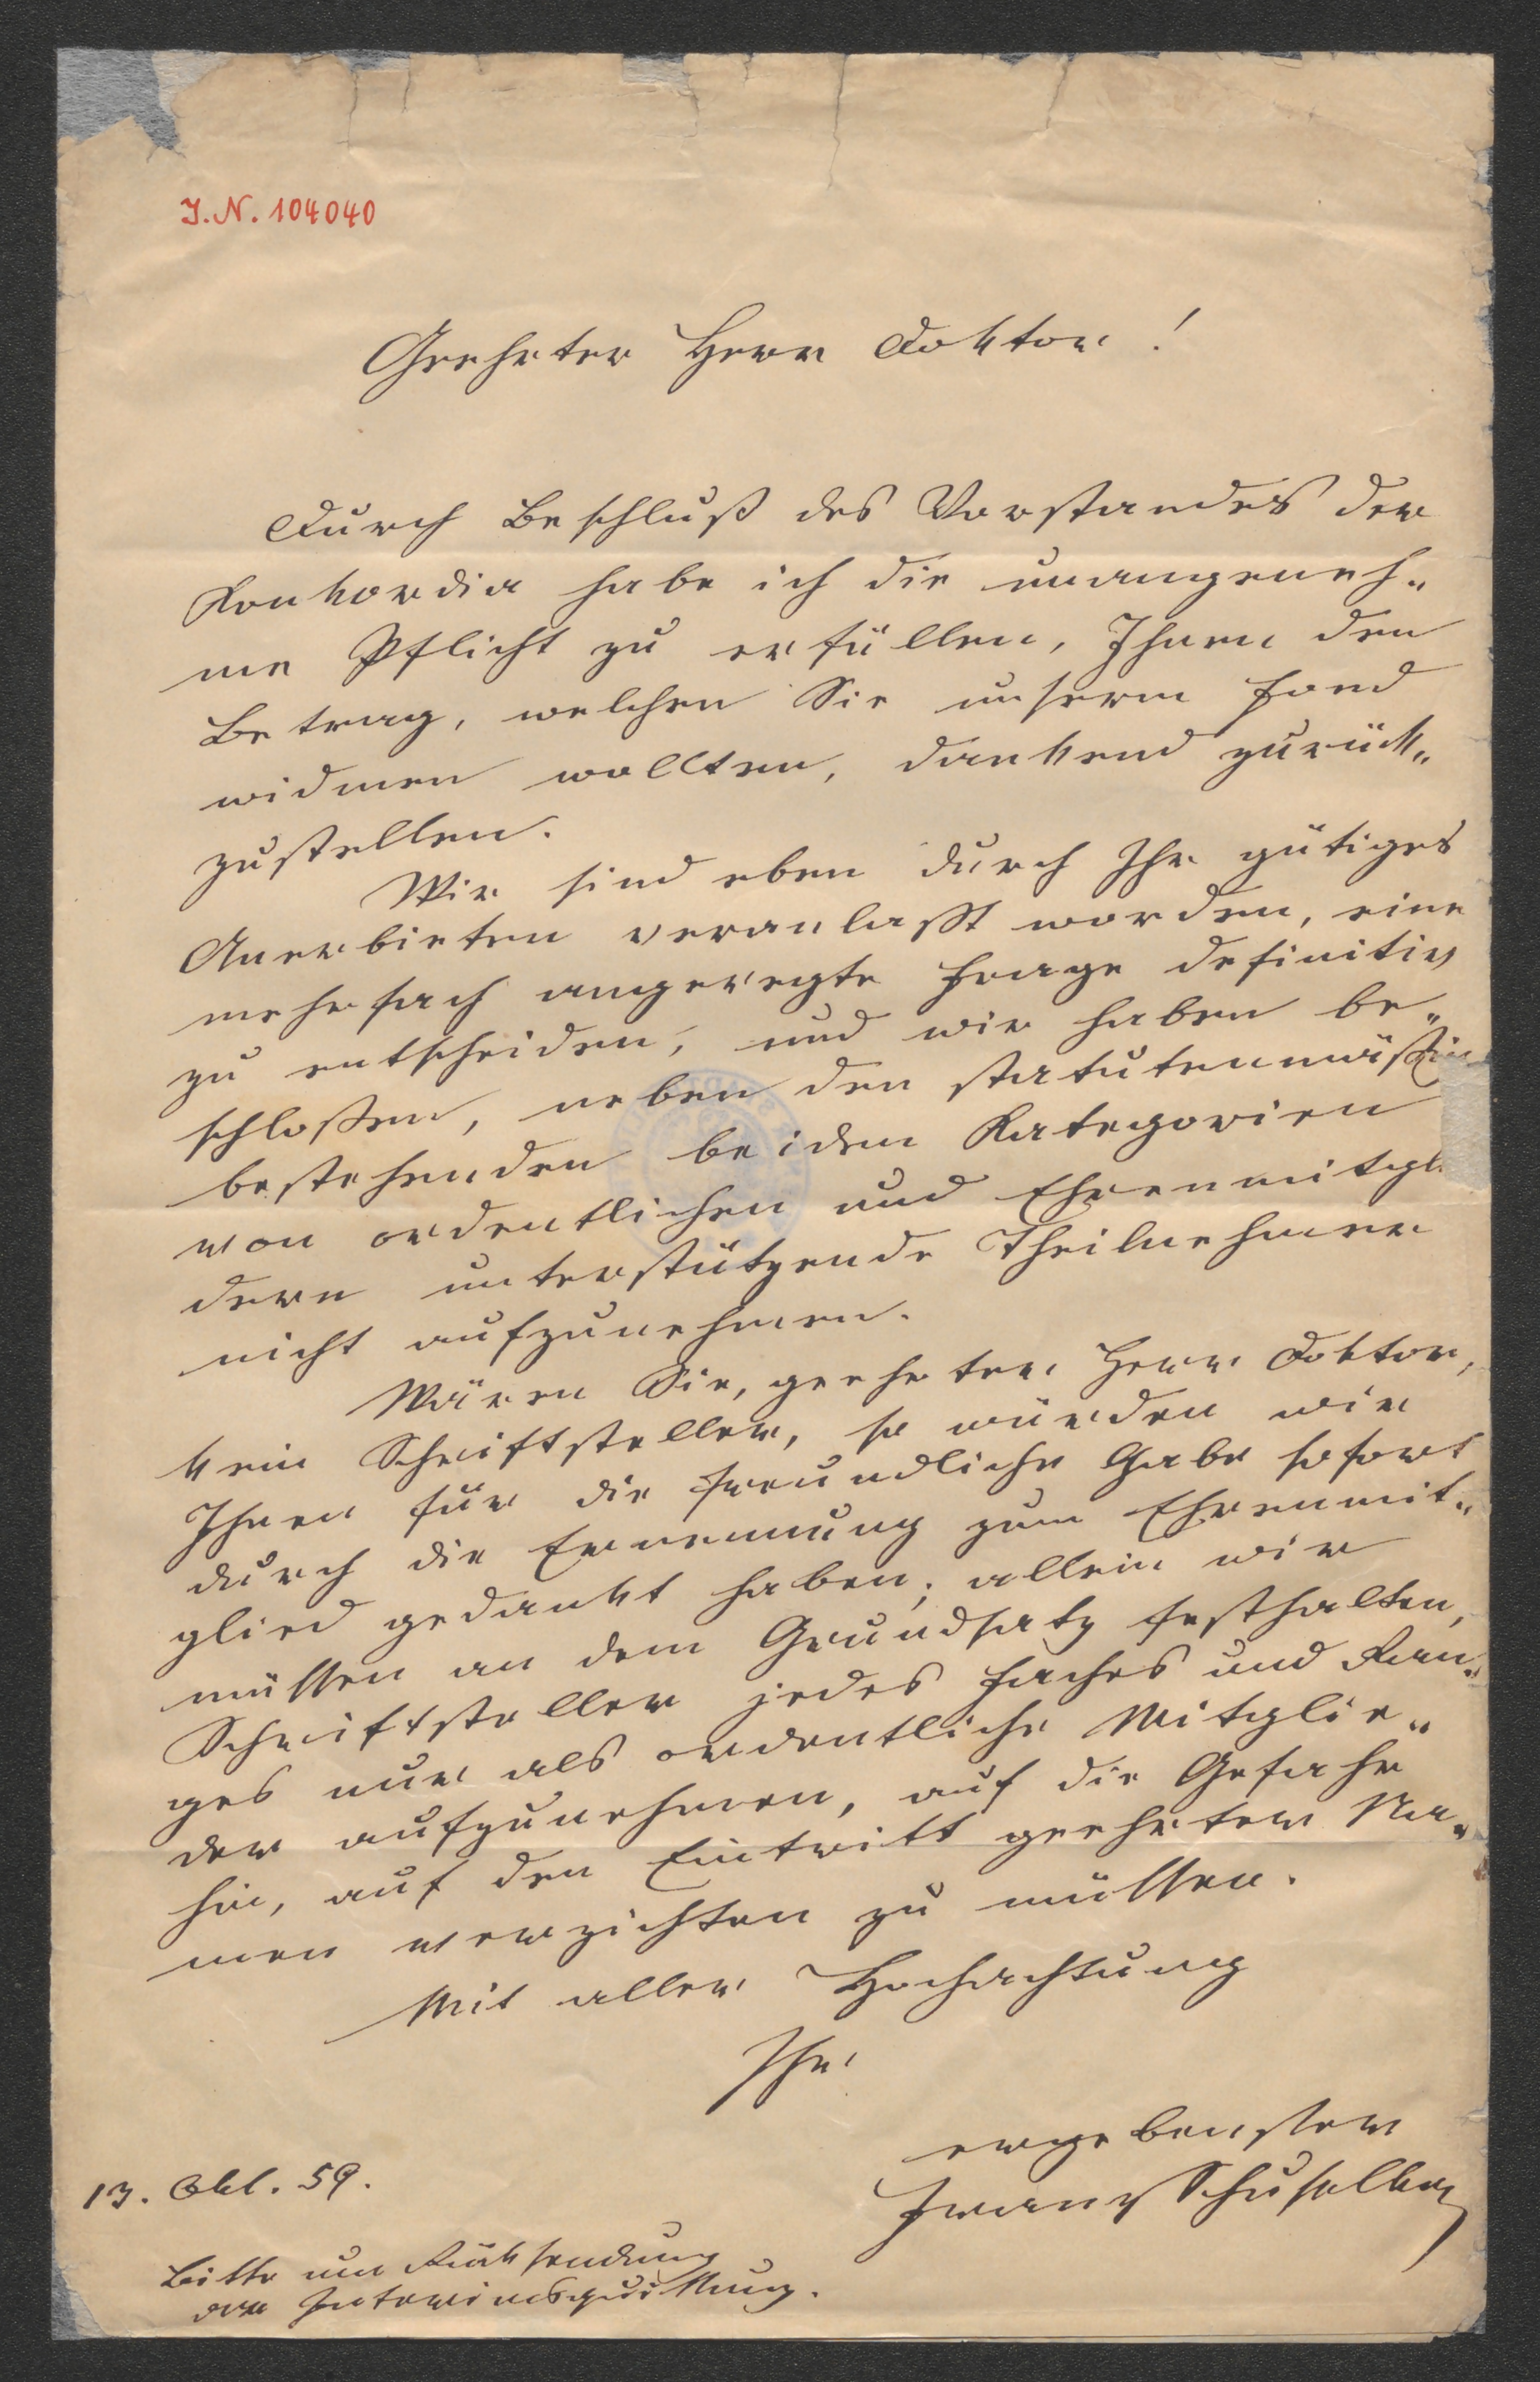 I.N. 104040
Geehrter Herr Doktor!
Durch Beschluß des Vorstandes der
Konkordia habe ich die unangeneh„
me Pflicht zu erfüllen, Ihnen den
Betrag, welchen Sie unserm Fond
widmen wollten, dankend zurück„
zustellen.
Wir sind eben durch Ihr gütiges
Anerbieten veranlaßt worden, eine
mehrfach angeregte Frage definitiv
zu entscheiden, und wir haben be„
schloßen, neben den statutenmäßig
bestehenden beiden Kategorien
von ordentlichen und Ehrenmitgl
dern unterstützende Theilnehmer
nicht aufzunehmen.
Wären Sie, geehrter Herr Doktor,
kein Schriftsteller, so würden wir
Ihnen für die freundliche Gabe sofort
durch die Ernennung zum Ehrenmit„
glied gedankt haben; allein wir
müssen an dem Grundsatz festhalten,
Schriftsteller jedes Faches und Ran„
ges nur als ordentliche Mitglie„
der aufzunehmen, auf die Gefahr
hin, auf den Eintritt geehrter Na„
men verzichten zu müssen.
Mit aller Hochachtung
Ihr
ergebenster
Franz Schuselka
13. Okt. 59.
Bitte um Rücksendung
der Interimsquittung.